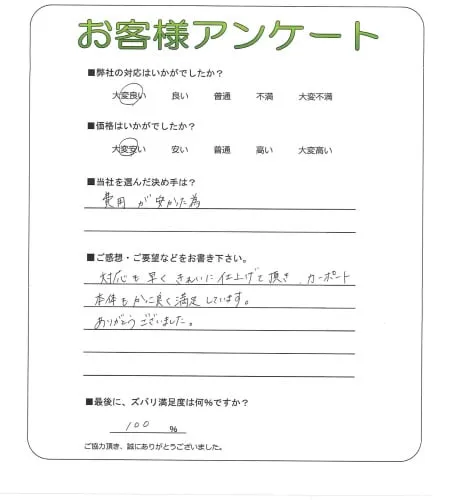 お客様アンケート
■弊社の対応はいかがでしたか？
大変良い 良い 普通 不満 大変不満
■価格はいかがでしたか？
大変安い 安い 普通 高い 大変高い
■当社を選んだ決め手は？
費用が安かった為
■ご感想・ご要望などをお書き下さい。
対応も早くきれいに仕上げて頂き、カーポート
本体もかっこ良く満足しています。
ありがとうございました。
■最後に、ズバリ満足度は何％ですか？
100 %
ご協力頂き、誠にありがとうございました。